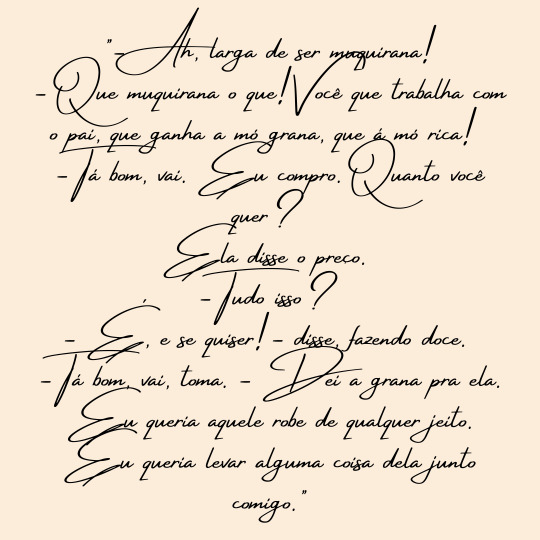 "- Ah, larga de ser muquirana!
- Que muquirana o que! Você que trabalha com
o pai, que ganha a mó grana, que á mó rica!
- Tá bom, vai. Eu compro. Quanto você
quer?
Ela disse o preço.
- Tudo isso?
- É, e se quiser! - disse, fazendo doce.
- Tá bom, vai, toma. - Dei a grana pra ela.
Eu queria aquele robe de qualquer jeito.
Eu queria levar alguma coisa dela junto
comigo."